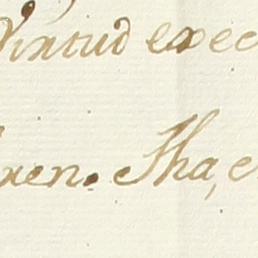 Virtud exec
xen. Sha, e